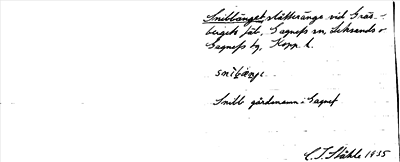 Snibbänget slåtteränge vid Gräs-
bergets fäb., Gagnefs sn, Leksands o
Gagnefs tg, Kopp. l.
snibäŋe
Snibb gårdsnamn i Gagnef
C. I. Ståhle 1935